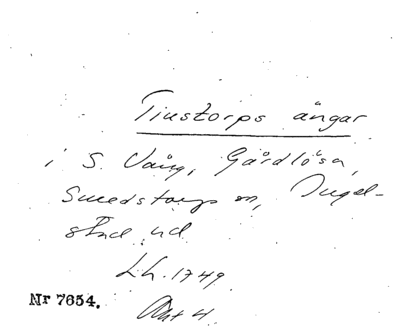 Tiustorps ängar
i S. Vång, Gårdlösa,
Smedstorps sn, Ingel-
stad hd
Lh. 1749.
Nr 7654. Akt 4